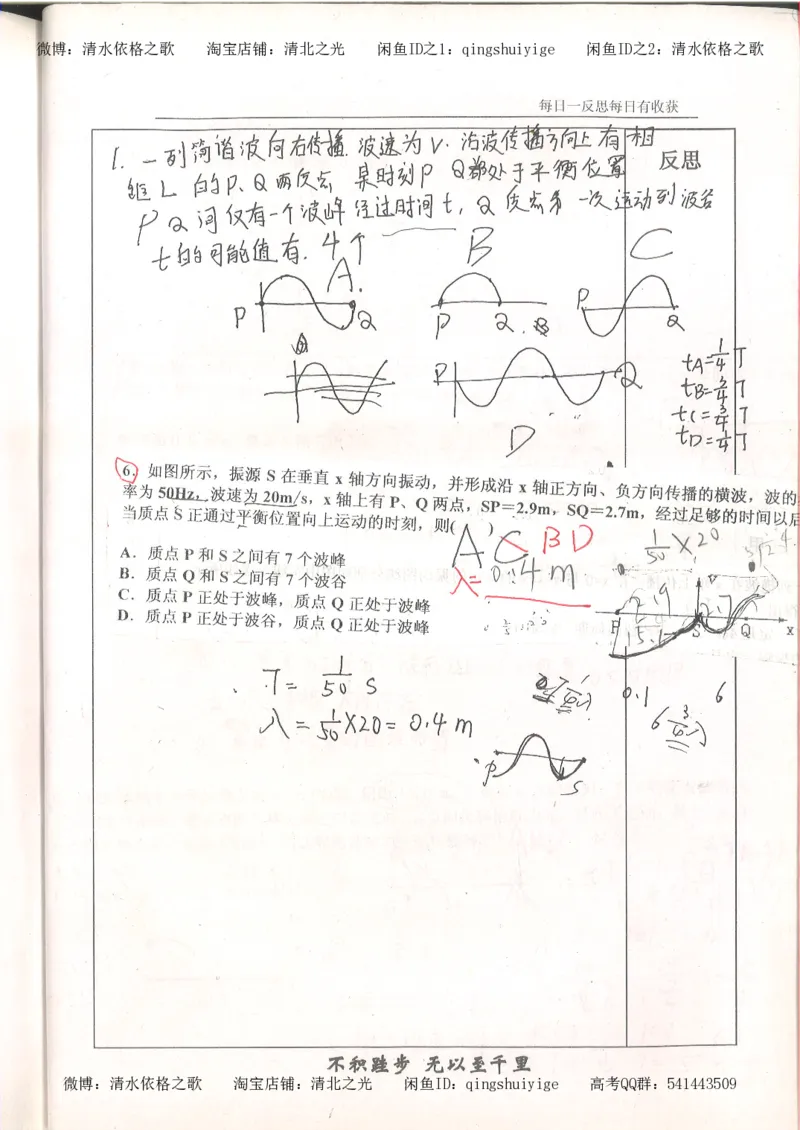 微博：清水依格之歌 淘宝店铺：清北之光 闲鱼ID之1：qingshuiyige 闲鱼ID之2：清水依格之歌
每日一反思每日有收获
反思
1. 一列简谐波向右传播 波速为 V. 沿波传播方向上有相
距 L 的P、Q两质点 某时刻P Q都处于平衡位置
P Q间仅有一个波峰 经过时间t, Q质点第一次运动到波谷
t的可能值有. 4个
A. B C
P Q P Q P Q
P Q
D
tA=1/4 T
tB=3/4 T
tC=3/4 T
tD=1/4 T
6. 如图所示，振源 S 在垂直 x 轴方向振动，并形成沿 x 轴正方向、负方向传播的横波，波的
率为 50Hz，波速为 20m/s，x 轴上有 P、Q 两点，SP＝2.9m，SQ＝2.7m，经过足够的时间以后
当质点 S 正通过平衡位置向上运动的时刻，则( )
AC BD
A．质点 P 和 S 之间有 7 个波峰
B．质点 Q 和 S 之间有 7 个波谷
C．质点 P 正处于波峰，质点 Q 正处于波峰
D．质点 P 正处于波谷，质点 Q 正处于波峰
λ= 0.4 m
1/50 ×20
2.9 2.7
P S Q x
T= 1/50 S
λ= 1/50 ×20= 0.4 m
0.1 6
6 3/4
P S
不积跬步 无以至千里
微博：清水依格之歌 淘宝店铺：清北之光 闲鱼ID：qingshuiyige 高考QQ群：541443509